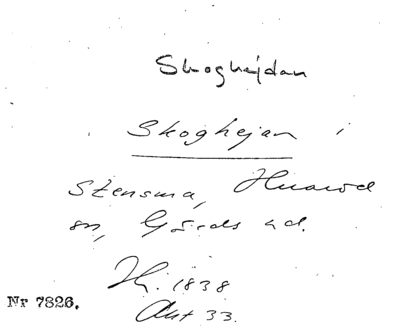 Skoghejdan
Skoghejan i
Stensma, Huaröd
sn, Gärds hd.
H. 1838
Akt 33.
Nr 7826.